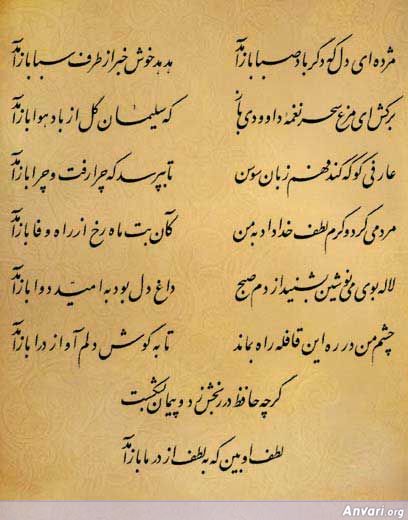 مژده ای دل که دگر باد صبا باز آمد هدهد خوش خبر از طرف سبا باز آمد
برکش ای مرغ سحر نغمه داوودی باز که سلیمان گل از باد هوا باز آمد
عارفی کو که کند فهم زبان سوسن تا بپرسد که چرا رفت و چرا باز آمد
مردمی کرد و کرم لطف خداداد به من کان بت ماه رخ از راه وفا باز آمد
لاله بوی می نوشین بشنید از دم صبح داغ دل بود به امید دوا باز آمد
چشم من در ره این قافله راه بماند تا به گوش دلم آواز درا باز آمد
گرچه حافظ در رنجش زد و پیمان بشکست
لطف او بین که به لطف از در ما باز آمد
Anvari.org